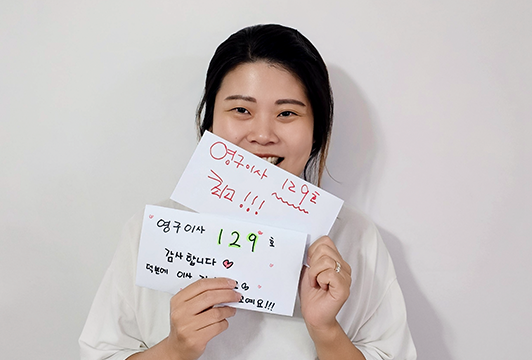 영구이사 129호
최고!!!
영구이사 129호
감사합니다♡
덕분에 이사
예요!!!